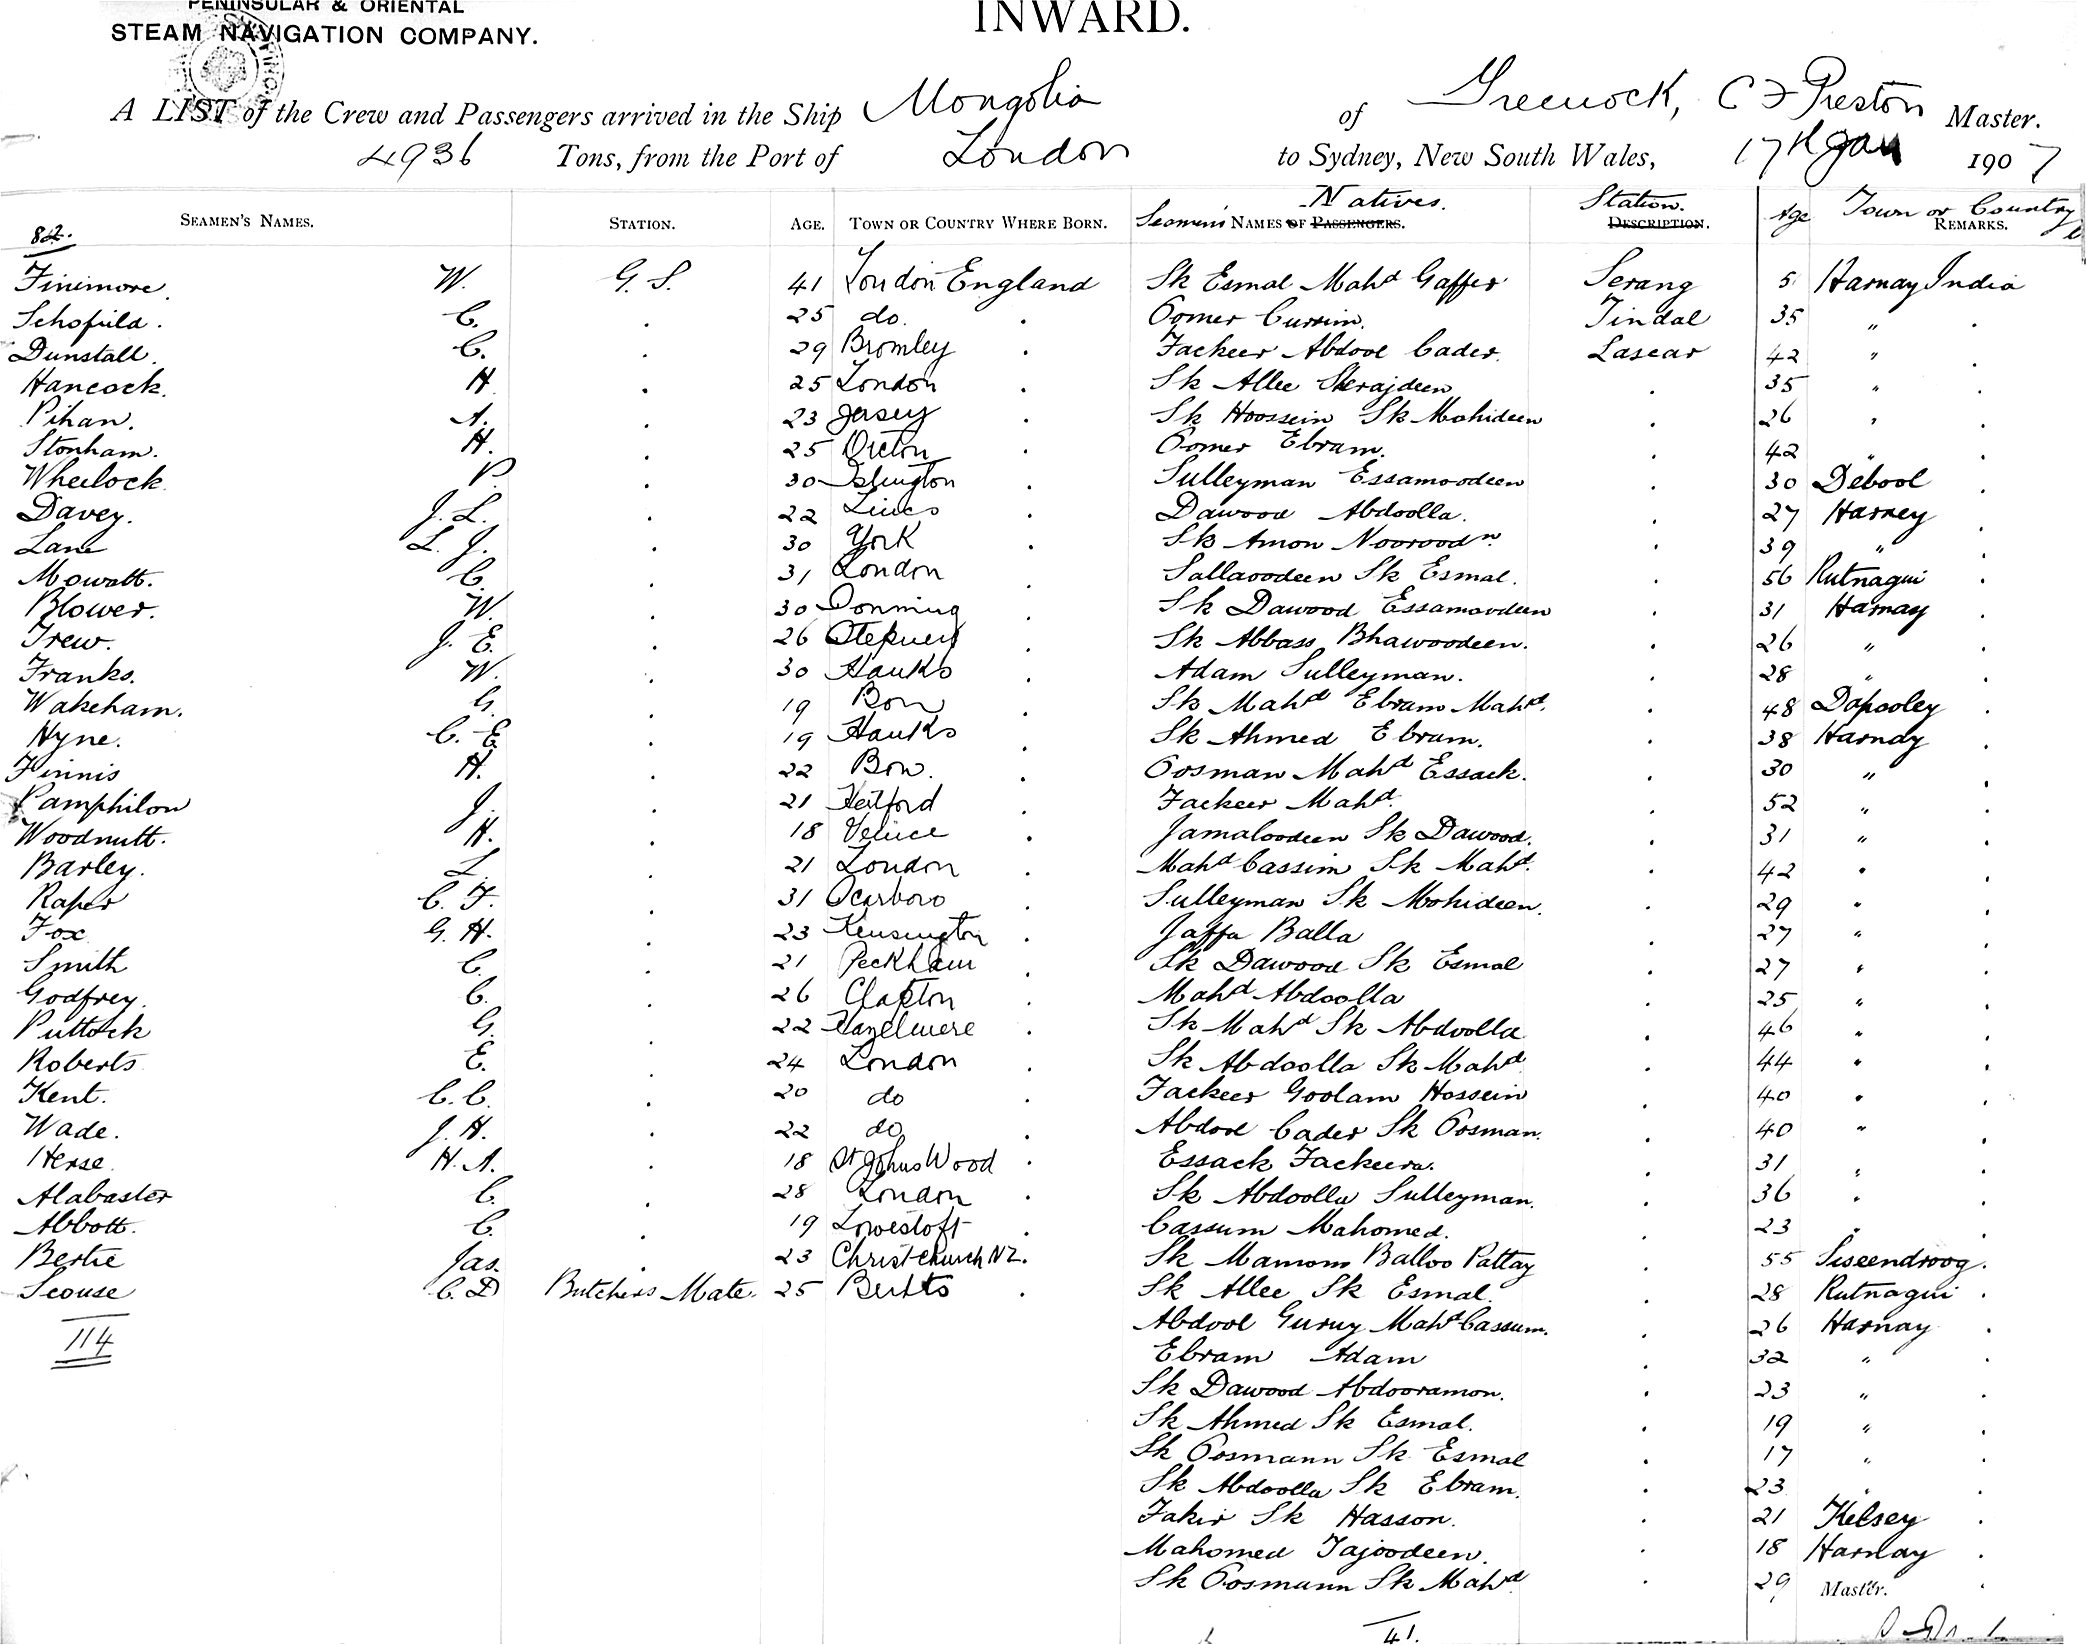 PENINSULAR & ORIENTAL
STEAM NAVIGATION COMPANY.
INWARD.
A LIST of the Crew and Passengers arrived in the Ship Mongolia of Greenock, C F Preston Master.
4936 Tons, from the Port of London to Sydney, New South Wales, 17th Jan 1907
Natives. Station.
SEAMEN'S NAMES. STATION. AGE. TOWN OR COUNTRY WHERE BORN. Seamen's NAMES OF PASSENGERS. DESCRIPTION. Age Town or Country REMARKS.
82.
Finimore. W. G. S. 41 London England Sk Esmal Mahd Gaffer Serang 5 Harnay India
Schofield. C. . 25 do. . Oomer Currim. Tindal 35 " .
Dunstall. C. . 29 Bromley . Fackeer Abdool Cader. Lascar 42 " .
Hancock. H. . 25 London . Sk Allee Skerajdeen . 35 " .
Pihan. A. . 23 Jersey . Sk Hoossein Sk Mohideen . 26 " .
Stonham. H. . 25 . Oomer Ebram. . 42 " .
Wheelock. P. . 30 Islington . Sulleyman Essamoodeen . 30 Debool .
Davey. J. L. . 22 Lincs . Dawood Abdoolla. . 27 Harney .
Lane L. J. . 30 York . Sk Amon Nooroodn. . 39 " .
Mowatt. C. . 31 London . Sallaoodeen Sk Esmal. . 56 Rutnagiri .
Blower. W. . 30 . Sk Dawood Essamoodeen . 31 Harnay .
Trew. J. E. . 26 Stepney . Sk Abbass Bhawoodeen. . 26 " .
Franks. W. . 30 Hanks . Adam Sulleyman. . 28 " .
Wakeham. G. . 19 Bow . Sk Mahd Ebram Mahd. . 48 Dapooley .
Hyne. C. E. . 19 Hanks . Sk Ahmed Ebram. . 38 Harnay .
Finnis H. . 22 Bow. . Oosman Mahd Essack. . 30 " .
Pamphilon J. . 21 Hertford . Fackeer Mahd. . 52 " .
Woodnutt. H. . 18 Venice . Jamaloodeen Sk Dawood. . 31 " .
Barley. L. . 21 London . Mahd Cassim Sk Mahd. . 42 " .
Raper C. F. . 31 Scarboro . Sulleyman Sk Mohideen. . 29 " .
Fox G. H. . 23 Kensington . Jaffa Balla . 27 " .
Smith C. . 21 Peckham . Sk Dawood Sk Esmal . 27 " .
Godfrey. C. . 26 Clapton . Mahd Abdoolla . 25 " .
Puttock G. . 22 Hazelmere . Sk Mahd Sk Abdoolla . 46 " .
Roberts E. . 24 London . Sk Abdoolla Sk Mahd . 44 " .
Kent. C. C. . 20 do . Fackeer Goolam Hossein . 40 " .
Wade. J. H. . 22 do . Abdool Cader Sk Oosman. . 40 " .
Herse. H. A. . 18 St Johns Wood . Essack Fackeera. . 31 " .
Alabaster C. . 28 London . Sk Abdoolla Sulleyman. . 36 " .
Abbott. C. . 19 Lowestoft . Cassum Mahomed. . 23 " .
Bertie Jas. . 23 Christchurch NZ. Sk Mamom Balloo Pattay . 55 Siseendroog.
Scouse C. D Butchers Mate. 25 . Sk Allee Sk Esmal. . 28 Rutnagiri .
114 Abdool Guruy Mahd Cassum. . 26 Harnay .
Ebram Adam . 32 " .
Sk Dawood Abdooramon. . 23 " .
Sk Ahmed Sk Esmal. . 19 " .
Sk Oosmann Sk Esmal . 17 " .
Sk Abdoolla Sk Ebram. . 23 " .
Fakir Sk Hasson. . 21 Kelsey .
Mahomed Tajoodeen. . 18 Harnay .
Sk Oosmann Sk Mahd . 29 Master.
41.